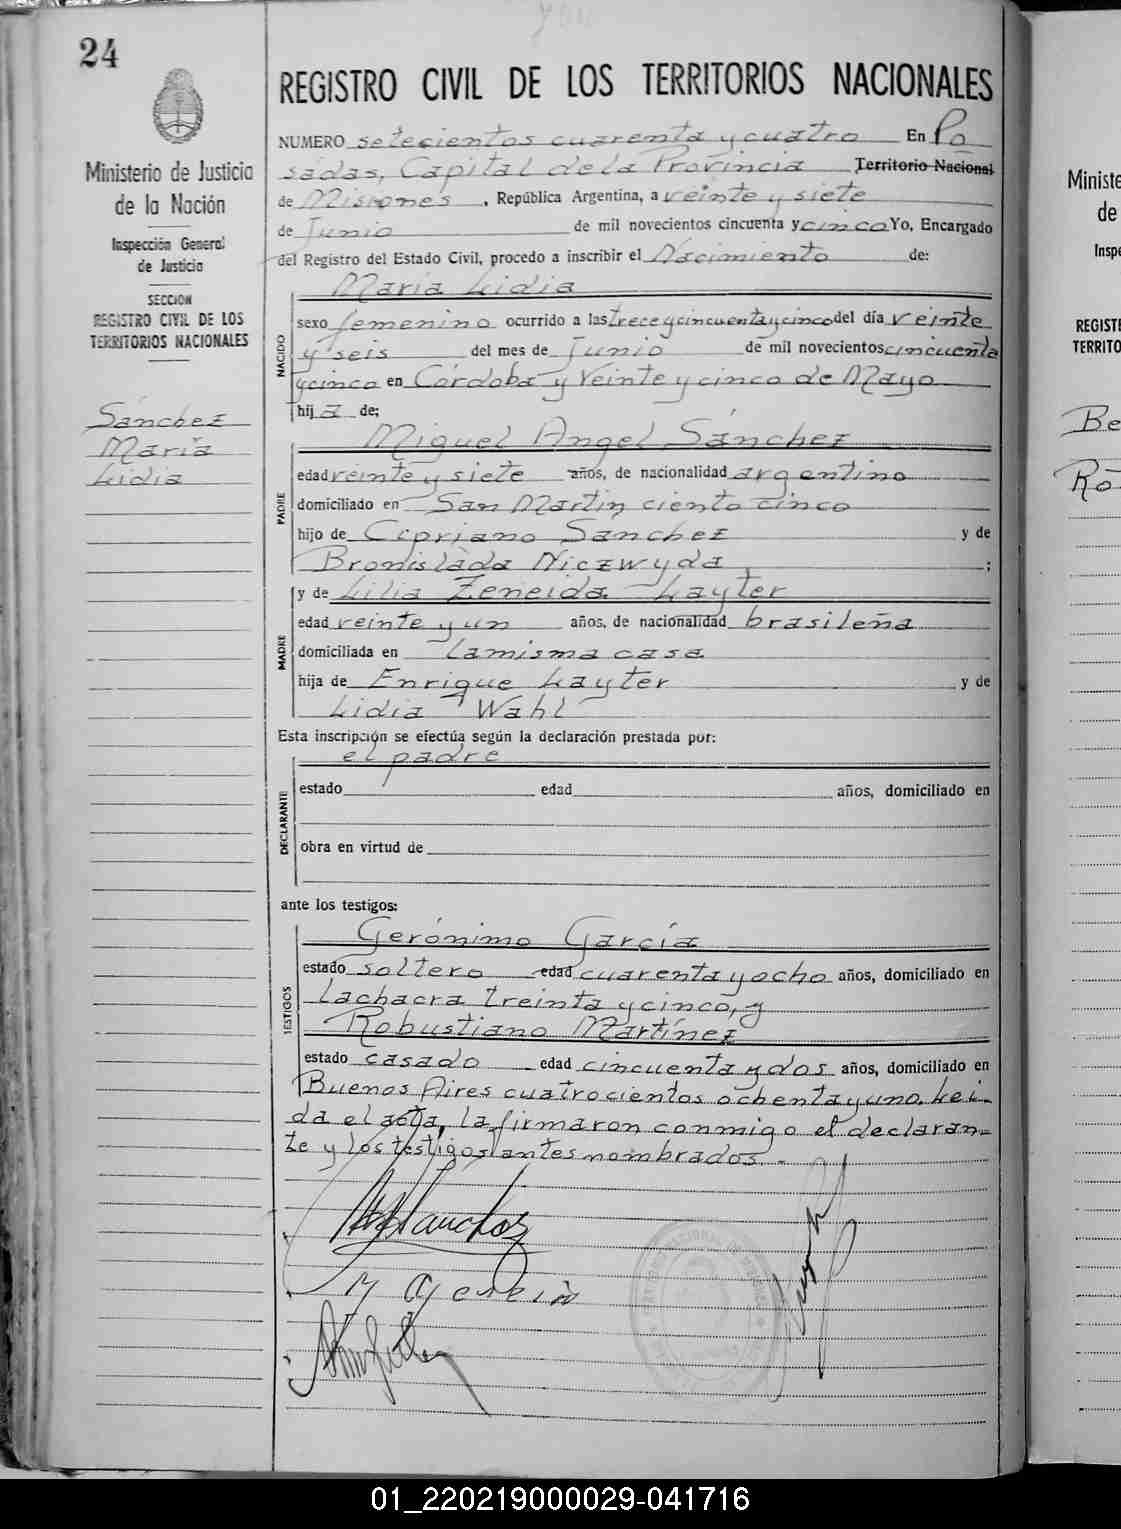 24
Ministerio de Justicia
de la Nación
Inspección General
de Justicia
SECCION
REGISTRO CIVIL DE LOS
TERRITORIOS NACIONALES
Sánchez
María
Lidia
REGISTRO CIVIL DE LOS TERRITORIOS NACIONALES
NUMERO setecientos cuarenta y cuatro En Po
sadas, Capital de la Provincia Territorio Nacional
de Misiones, República Argentina, a veinte y siete
de Junio de mil novecientos cincuenta y cinco Yo, Encargado
del Registro del Estado Civil, procedo a inscribir el Nacimiento de:
María Lidia
NACIDO
sexo femenino ocurrido a las trece y cincuenta y cinco del día veinte
y seis del mes de Junio de mil novecientos cincuenta
y cinco en Córdoba y Veinte y cinco de Mayo
hija de;
Miguel Angel Sánchez
PADRE
edad veinte y siete años, de nacionalidad argentino
domiciliado en San Martin ciento cinco
hijo de Cipriano Sánchez y de
Bronislada Niczwyda ;
y de Lilia Zeneida Layter
MADRE
edad veinte y un años, de nacionalidad brasileña
domiciliada en la misma casa
hija de Enrique Layter y de
Lidia Wahl
Esta inscripción se efectúa según la declaración prestada por:
el padre
DECLARANTE
estado edad años, domiciliado en
obra en virtud de
ante los testigos:
Gerónimo García
TESTIGOS
estado soltero edad cuarenta y ocho años, domiciliado en
La chacra treinta y cinco, y
Robustiano Martínez
estado casado edad cincuenta y dos años, domiciliado en
Buenos Aires cuatrocientos ochenta y uno. Lei-
da el acta, la firmaron conmigo el declaran-
te y los testigos antes nombrados.-
MASanchez
Ministe
de
Inspe
REGISTE
TERRITO
Be
Ro
01_220219000029-041716